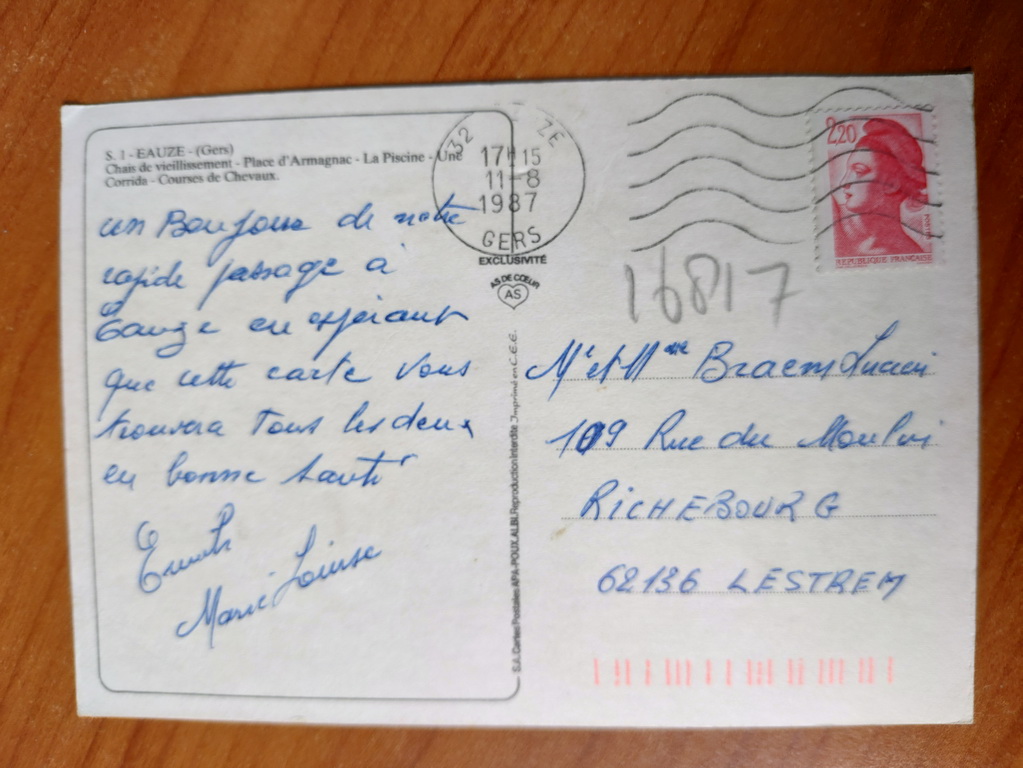 S. 1 - EAUZE - (Gers)
Chais de vieillissement - Place d'Armagnac - La Piscine - Une
Corrida - Courses de Chevaux.
un Bonjour de notre
rapide passage à
Eauze en espérant
que cette carte vous
trouvera Tous les deux
en bonne santé
Marie Louise
32 ZE
17H15
11-8
1987
GERS
EXCLUSIVITÉ
AS DE CŒUR
AS
S.A. Cartes Postales APA-POUX, ALBI. Reproduction Interdite Imprimé en C.E.E.
2,20
REPUBLIQUE FRANÇAISE
16817
Mr et Mme Braem Lucien
109 Rue du Moulin
RICHEBOURG
62136 LESTREM